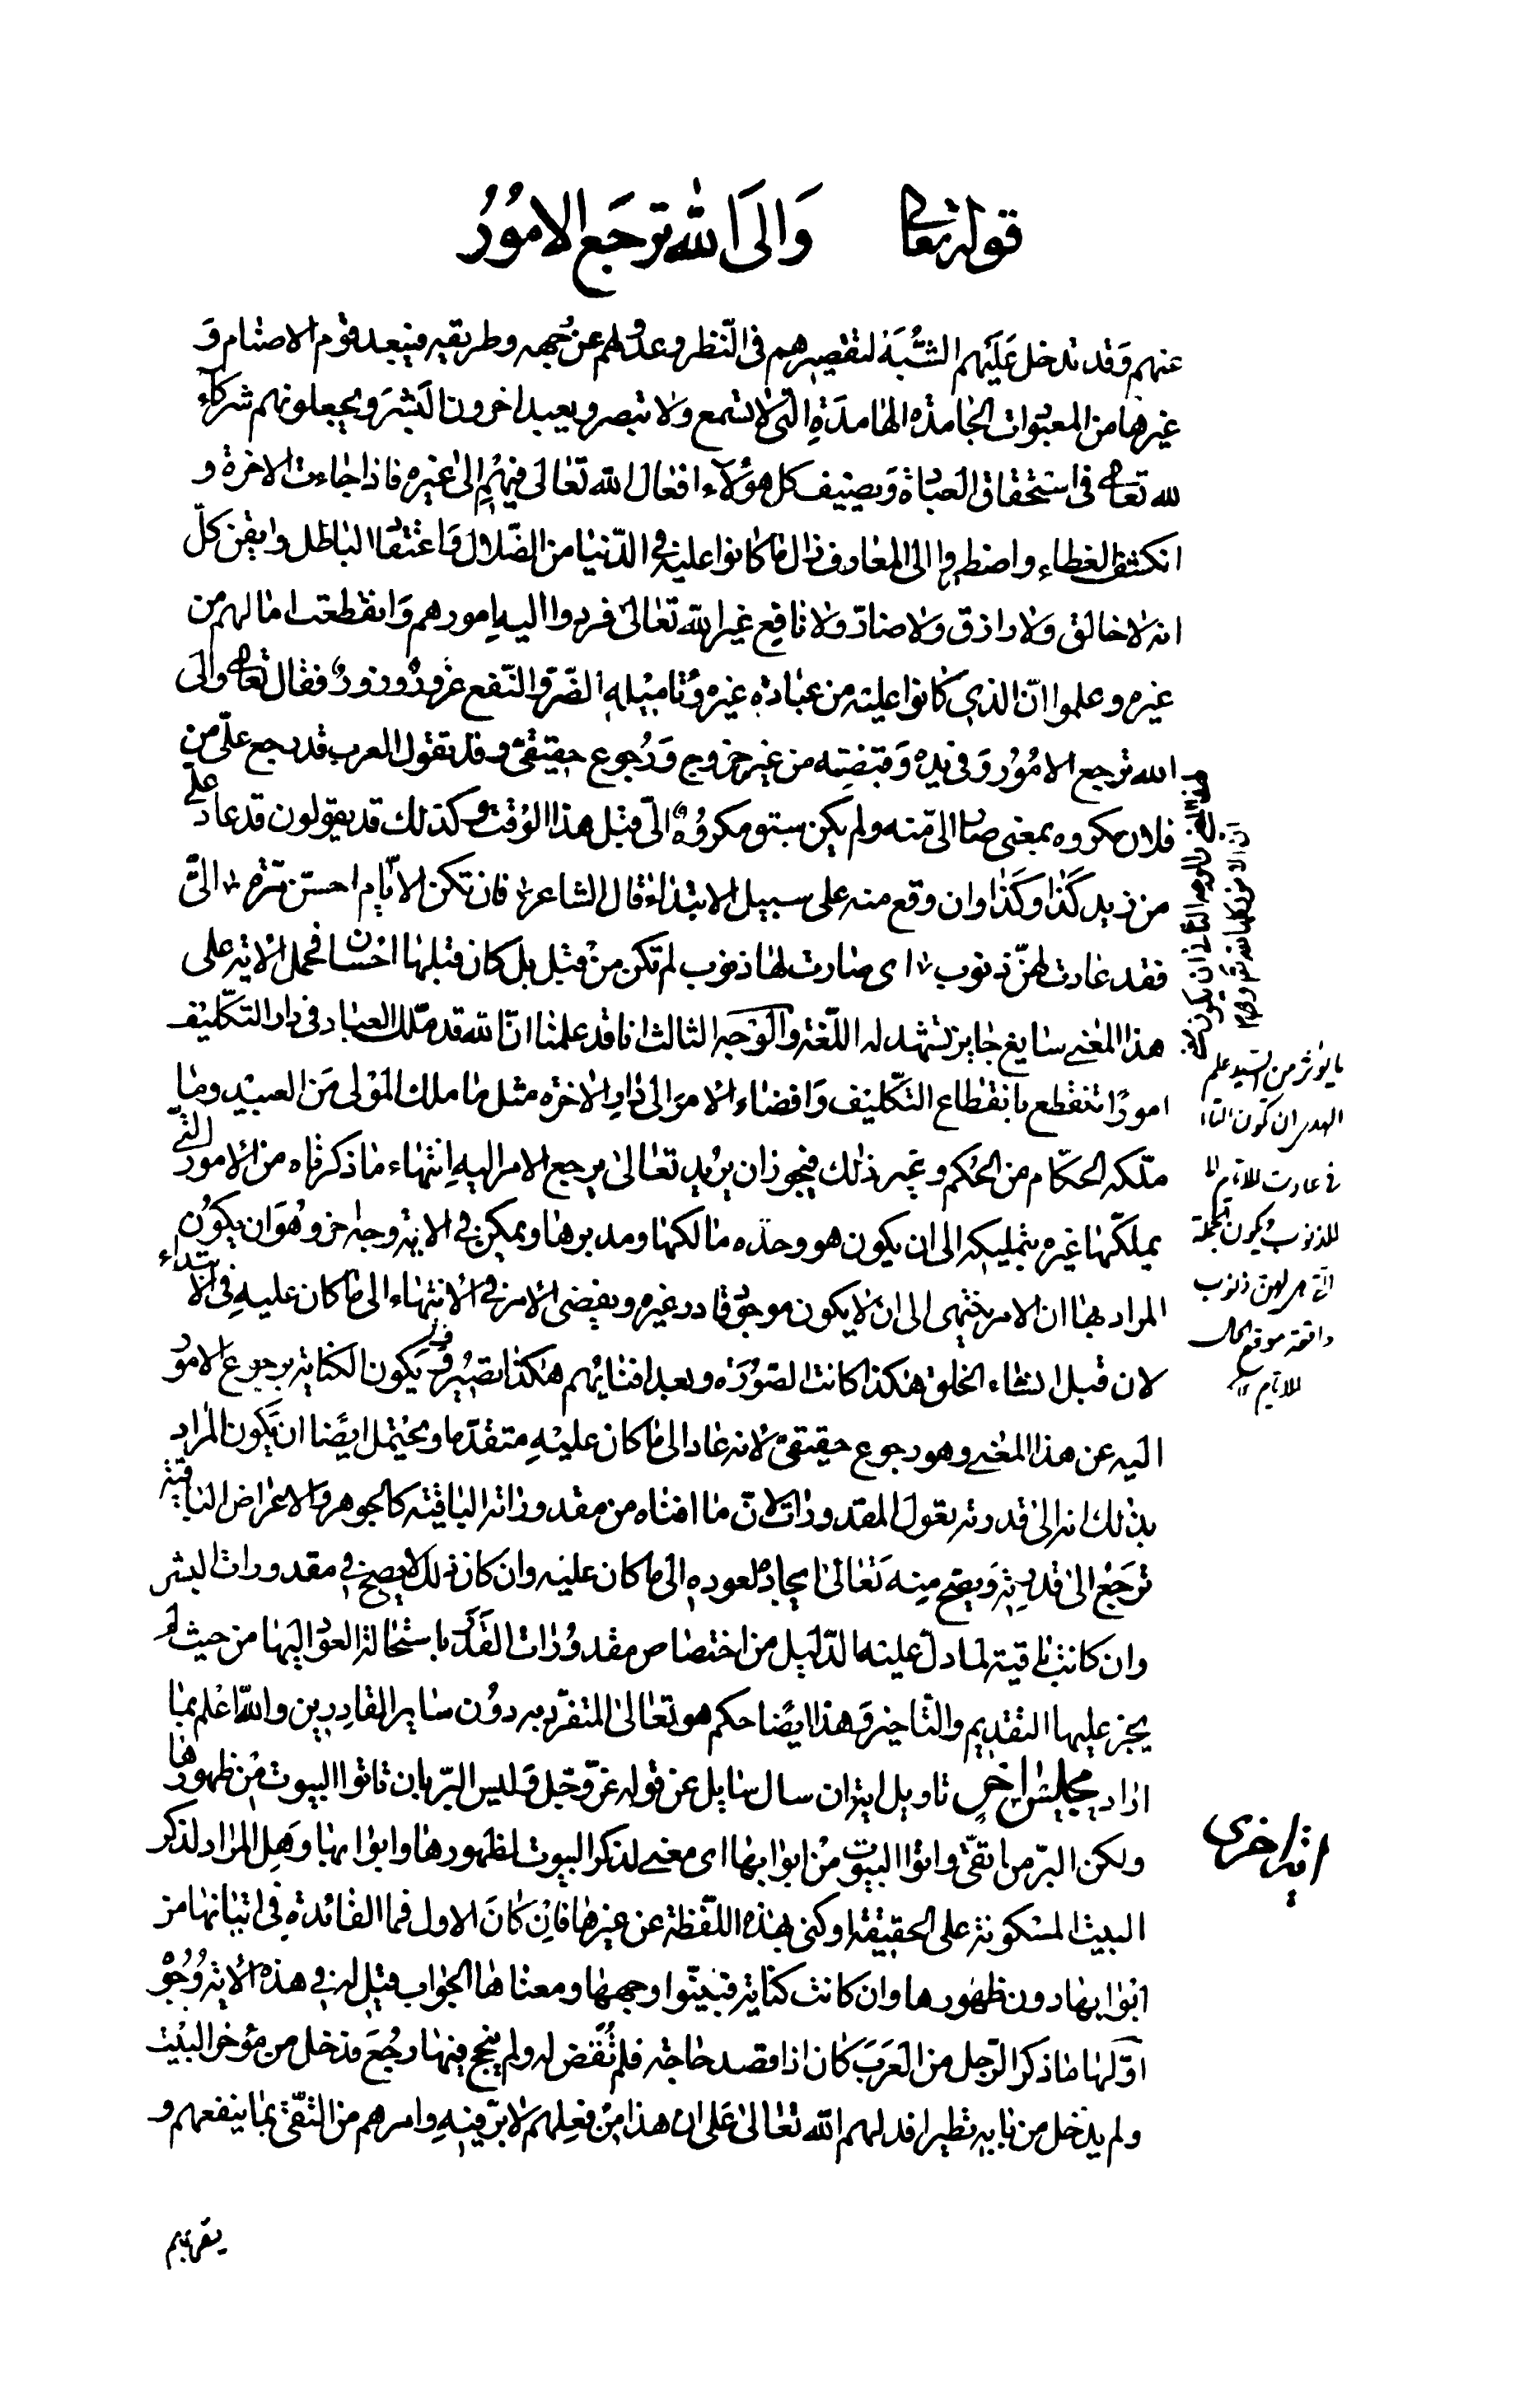 قوله تعالى وَالى الله ترجَع الامُورُ
عنهم وَقد تدخل عَلَيهم الشُّبَه لتقصيرهم فى النّظر وعدولهم عن وُجهه وطريقه فيعبد قوم الاصنام وَ
غيرها من المعبُودات الجامدة الهامدَةِ الّتى لا تسمع ولا تبصر ويعبد اخرون البَشَرَ ويجعلونهم شركآء
لله تعالى فى استحقاق العبادة وَيضيف كل هؤلآء افعال الله تعَالى فيهُم الىٰ غيره فاذا جاءت الاخرة و
انكشف الغطاء واضطروا الى المعارف زال ما كانوا عليه فى الدّنيا من الضّلال وَاعتقاد الباطل وايقن كلّ
انه لا خالق ولا رازق ولا ضارّ ولا نافع غير الله تعالى فردوا اليه امورهم وَانقطعت امالهم من
غيره وعلموا انّ الذى كانوا عليه من عبادة غيره وَتاميله الضّرّ والنّفع غرورٌ وزورٌ فقال تعالى والى
الله ترجع الامُورُ وَفى يده وَقبضته من غير خروج وَرُجوع حقيقىّ وقد تقول العرب قد رجع علىّ من
فلان مكروه بمعنى صار الىّ منه ولم يكن سبق مكروُهٌ الىّ قبل هذا الوَقت وكذلك قد يقولون قد عاد علىّ
من زيد كَذا وكَذا وان وقع منه على سبيل الابتداء قال الشاعر فان تكن الايّام احسنّ مرّة الىّ
فقد عادت لهنّ ذنوب اى صارت لها ذنوب لم تكن منْ قبل بل كان قبلها احْسان فحمل الاية على
هذا المعنى سايغ جايز تشهد له اللّغة والوَجه الثالث انا قد علمنا انّ الله قد ملّك العباد فى دار التكّليف
امورًا تنقطع بانقطاع التّكليف وَافضاء الامر الى دارِ الاخرة مثل ما ملك المَوْلى مَن العبيْد وما
ملّكه الحكّام من الحُكم وغير ذلك فيجوز ان يريد تعالىٰ برجع الامر اليه انتهاء ما ذكرناه من الامور التّى
يملكّها غيره بتمليكه الى ان يكون هو وحدّه مالكها ومدبرها ويمكن فى الاية وجه اخر وهُوَ ان يكوُن
المراد بها ان الامر ينتهى الى ان لا يكون موجود قادر غيره ويفضى الامر فى الانتهاء الى ما كان عليه فى الابتداء
لان قبل انشاء الخلق هكذا كانت الصّوُرَة وبعد افنائهم هكذا تصير فيكون الكناية برجوع الامور
اليه عن هذا المعنى وهو رجوع حقيقىّ لانه عاد الى ما كان عليه متقدّما ويحتمل ايضا ان يكون المراد
بذلك انه الىٰ قدرته يعُول المقدورات لانّ ما افناه من مقدوراته الباقية كالجوهر والاعراض الباقية
ترجَعُ الىٰ قدرته وَيصح منه تَعَالىٰ ايجاده لعوده الى ما كان عليه وان كان ذلك لا يصح فى مقدورات البشر
وان كانت باقية لما دلّ عليه الدّليل من اختصاص مقدوُرات القَدَر باستحالة العود اليها من حيث لم
يجز عليها التقديم والتاخير وَهذا ايضا حكم هو تعالىٰ المتفرّد به دوُن ساير القادرين والله اعْلم بما
اراد مجلِسٌ اخر تاويل اية ان سال سايل عن قوله عزّ وجَل وليس البرّ بان تاتوا البيوت مِن ظهورها
ولكن البرّ من اتقىّ واتوا البيوت منْ ابوابها اى معنى لذكر البيوت لظهورها وابوابها وهل المراد لذكر
البيوت المسكونة على الحقيقة او كنى بهذه اللّفظة عن غيرها فان كانَ الاول فما الفائدة فى اتيانها من
ابْوابها دون ظهُورها وان كانت كناية فبيّنوا وجهها ومعناها الجواب قيل له فى هذه الاية وُجُوْ
اوّلها ما ذكر الرّجل من العَرَب كان اذا قصد حاجة فلم تُقْض له ولم ينجح فيها رجُعَ فدخل من مؤخر البيْت
ولم يدخل من بابه تطيرا فدلهم الله تعالىٰ عَلى ان هذا مِنْ فعِلهم لا برّ فيه وامرهم من التّقىٰ بما ينفعهم و
ما يؤثر من السيد علم
الهدى ان يكون التا
فى عادت للايام لا
للذنوب ويكون الجملة
التى هى لهن ذنوب
واقعة موقع الحال
للايام
اية اخرى
يقربهم